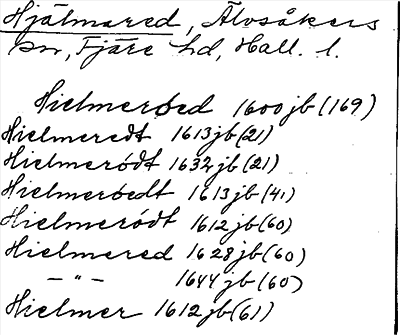 Hjälmared, Älvsåkers
sn, Fjäre hd, Hall. l.
Hielmerøed 1600 jb (169)
Hielmeredt 1613 jb (21)
Hielmerödt 1632 jb (21)
Hielmeröedt 1613 jb (41)
Hielmerödt 1612 jb (60)
Hielmered 1628 jb (60)
—"— 1644 jb (60)
Hielmer 1612 jb (61)